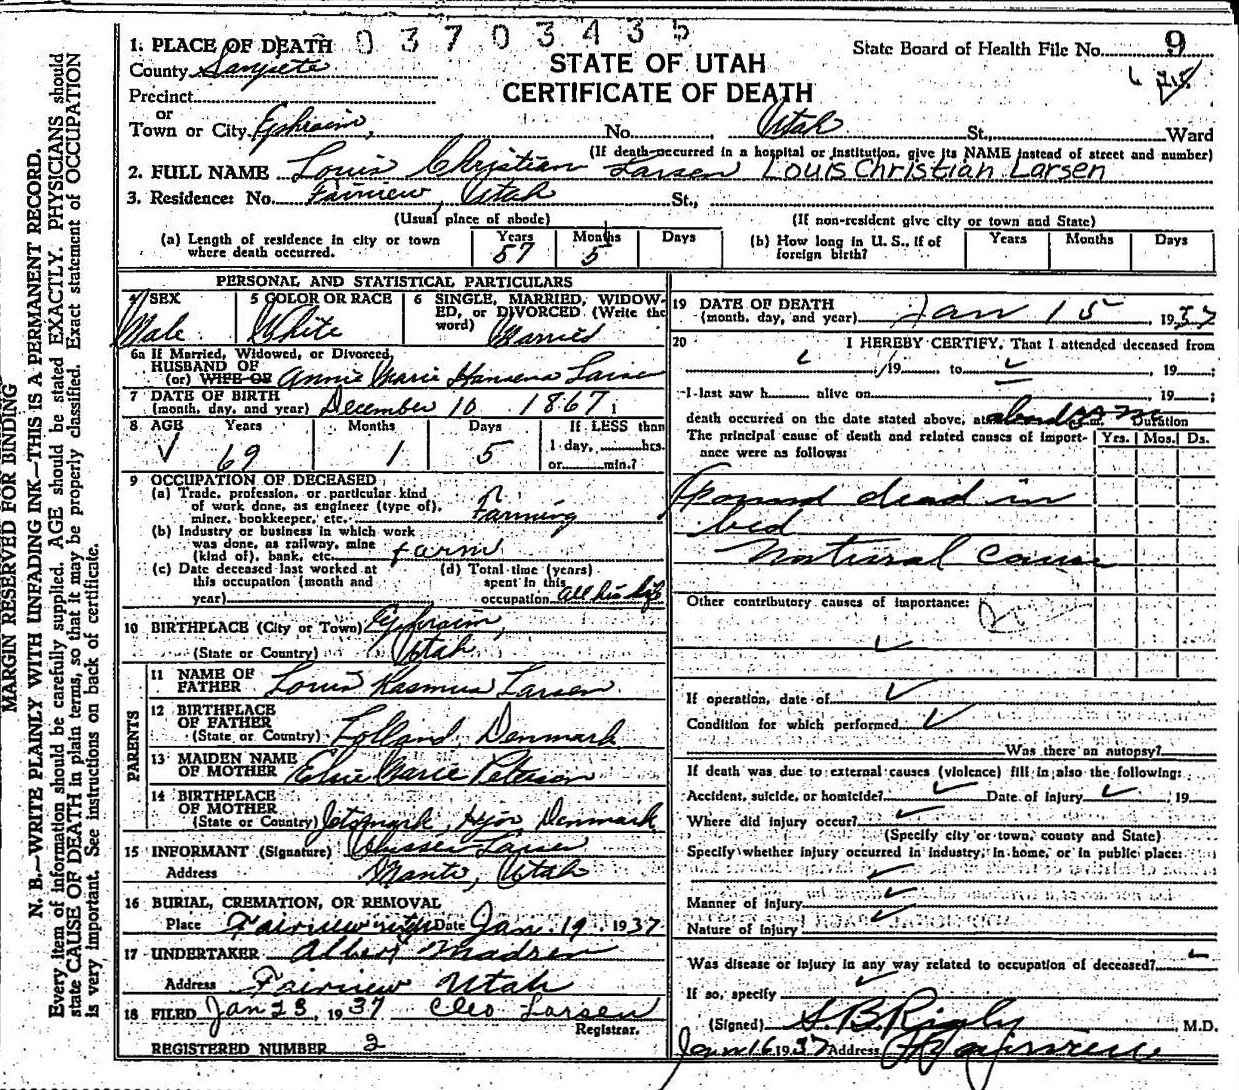 03703435
1. PLACE OF DEATH
County Sanpete
Precinct
or
Town or City Ephraim, No. Utah St. Ward
State Board of Health File No. 9
STATE OF UTAH
CERTIFICATE OF DEATH
(If death occurred in a hospital or institution, give its NAME instead of street and number)
2. FULL NAME Louis Christian Larsen Louis Christian Larsen
3. Residence: No. Fairview, Utah St.,
(Usual place of abode) (If non-resident give city or town and State)
(a) Length of residence in city or town where death occurred. Years 57 Months 5 Days
(b) How long in U. S., if of foreign birth? Years Months Days
PERSONAL AND STATISTICAL PARTICULARS
4 SEX Male
5 COLOR OR RACE White
6 SINGLE, MARRIED, WIDOWED, or DIVORCED (Write the word) Married
6a If Married, Widowed, or Divorced
HUSBAND OF
(or) WIFE OF Annie Marie Larsen
7 DATE OF BIRTH
(month, day, and year) December 10 1867
8 AGE Years 69 Months 1 Days 5 If LESS than 1 day, hrs. or min.?
9 OCCUPATION OF DECEASED
(a) Trade, profession, or particular kind of work done, as engineer (type of), miner, bookkeeper, etc. Farming
(b) Industry or business in which work was done, as railway, mine (kind of), bank, etc. farm
(c) Date deceased last worked at this occupation (month and year)
(d) Total time (years) spent in this occupation all his life
10 BIRTHPLACE (City or Town) Ephraim,
(State or Country) Utah
PARENTS
11 NAME OF FATHER Louis Rasmus Larsen
12 BIRTHPLACE OF FATHER
(State or Country) Lolland, Denmark
13 MAIDEN NAME OF MOTHER Marie
14 BIRTHPLACE OF MOTHER
(State or Country) Denmark
15 INFORMANT (Signature) Larsen
Address Manti, Utah
16 BURIAL, CREMATION, OR REMOVAL
Place Fairview Date Jan. 19, 1937
17 UNDERTAKER Albert Madsen
Address Fairview Utah
18 FILED Jan 23, 1937 Cleo Larsen
Registrar.
REGISTERED NUMBER 2
19 DATE OF DEATH
(month, day, and year) Jan 15, 1937
20 I HEREBY CERTIFY, That I attended deceased from
, 19 to , 19 ;
I last saw h alive on , 19 ;
death occurred on the date stated above, at about m.
The principal cause of death and related causes of importance were as follows:
Duration
Yrs. Mos. Ds.
Found dead in
bed
natural cause
Other contributory causes of importance:
If operation, date of
Condition for which performed
Was there an autopsy?
If death was due to external causes (violence) fill in also the following:
Accident, suicide, or homicide? Date of injury , 19
Where did injury occur?
(Specify city or town, county and State)
Specify whether injury occurred in industry, in home, or in public place:
Manner of injury
Nature of injury
Was disease or injury in any way related to occupation of deceased?
If so, specify
(Signed) S. B. Rigby M.D.
Jan 16 1937 Address
MARGIN RESERVED FOR BINDING
N. B.—WRITE PLAINLY WITH UNFADING INK—THIS IS A PERMANENT RECORD.
Every item of information should be carefully supplied. AGE should be stated EXACTLY. PHYSICIANS should
state CAUSE OF DEATH in plain terms, so that it may be properly classified. Exact statement of OCCUPATION
is very important. See instructions on back of certificate.